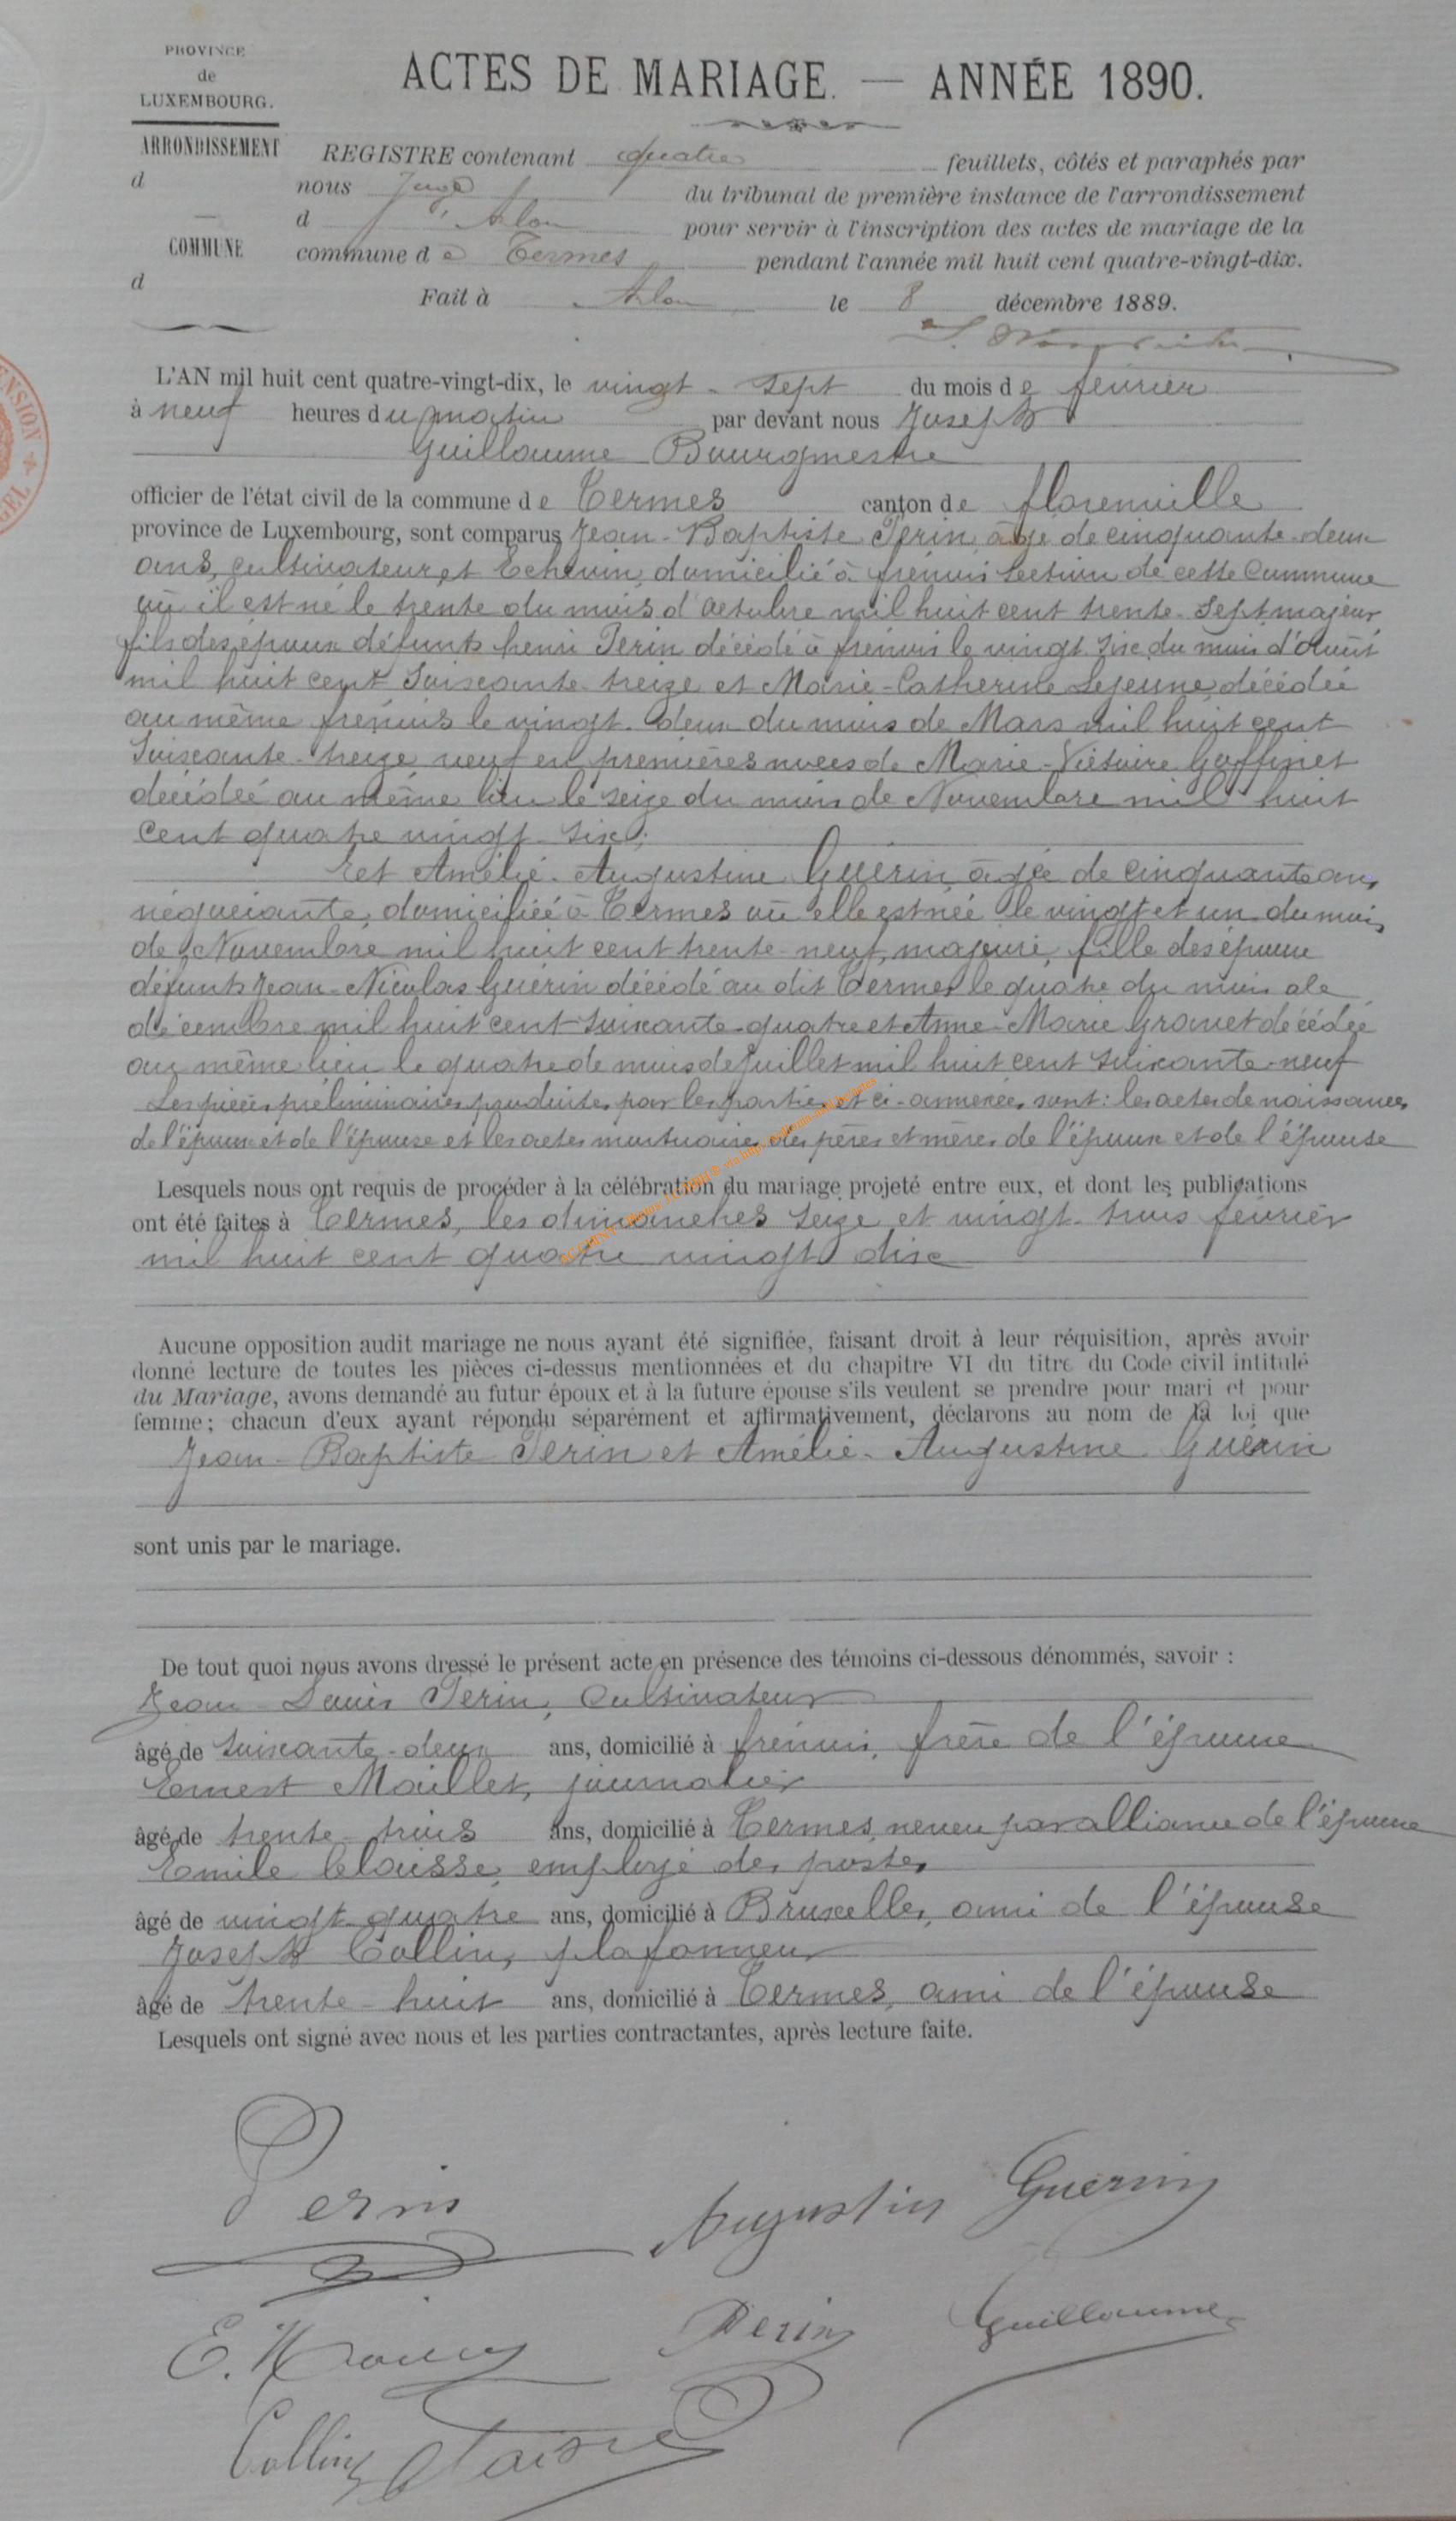 PROVINCE
de
LUXEMBOURG.
ACTES DE MARIAGE. — ANNÉE 1890.
ARRONDISSEMENT
d
COMMUNE
d
REGISTRE contenant quatre feuillets, côtés et paraphés par
nous Juge du tribunal de première instance de l'arrondissement
d'Arlon pour servir à l'inscription des actes de mariage de la
commune de Termes pendant l'année mil huit cent quatre-vingt-dix.
Fait à Arlon le 8 décembre 1889.
L'AN mil huit cent quatre-vingt-dix, le vingt-sept du mois de février
à neuf heures du matin par devant nous Joseph
Guillaume Bourgmestre
officier de l'état civil de la commune de Termes canton de florenville
province de Luxembourg, sont comparus Jean-Baptiste Perin, âgé de cinquante-deux
ans, cultivateur et Echevin, domicilié à frenois section de cette Commune
où il est né le trente du mois d'octobre mil huit cent trente-sept, majeur
fils des époux défunts henri Perin décédé à frénois le vingt six du mois d'août
mil huit cent soixante-treize et Marie-Catherine Lejeune décédée
au même frénois le vingt-deux du mois de Mars mil huit cent
soixante-treize veuf en premières noces de Marie-Victoire Goffinet
décédée au même lieu le seize du mois de Novembre mil huit
cent quatre vingt-six;
Et Amélie-Augustine Guérin, âgée de cinquante ans,
négociante, domiciliée à Termes où elle est née le vingt et un du mois
de Novembre mil huit cent trente-neuf, majeure, fille des époux
défunts Jean-Nicolas Guérin décédé au dit Termes le quatre du mois de
décembre mil huit cent soixante-quatre et Anne-Marie Gravet décédée
au même lieu le quatre de mois de Juillet mil huit cent soixante-neuf
Les pièces préliminaires produites par les parties et ci-annexées, sont: les actes de naissances
de l'époux et de l'épouse et les actes mortuaires des pères et mères de l'époux et de l'épouse
Lesquels nous ont requis de procéder à la célébration du mariage projeté entre eux, et dont les publications
ont été faites à Termes, les dimanches seize et vingt-trois février
mil huit cent quatre vingt dix
Aucune opposition audit mariage ne nous ayant été signifiée, faisant droit à leur réquisition, après avoir
donné lecture de toutes les pièces ci-dessus mentionnées et du chapitre VI du titre du Code civil intitulé
du Mariage, avons demandé au futur époux et à la future épouse s'ils veulent se prendre pour mari et pour
femme; chacun d'eux ayant répondu séparément et affirmativement, déclarons au nom de la loi que
Jean-Baptiste Perin et Amélie-Augustine Guérin
sont unis par le mariage.
De tout quoi nous avons dressé le présent acte en présence des témoins ci-dessous dénommés, savoir :
Jean Louis Perin, Cultivateur
âgé de soixante-deux ans, domicilié à frénois, frère de l'époux
Ernest Maillet, journalier
âgé de trente-trois ans, domicilié à Termes, neveu par alliance de l'époux
Emile Claisse, employé des postes
âgé de vingt-quatre ans, domicilié à Bruxelles, ami de l'épouse
Joseph Collin, plafonneur
âgé de trente-huit ans, domicilié à Termes, ami de l'épouse
Lesquels ont signé avec nous et les parties contractantes, après lecture faite.
Perin
Augustin Guerin
Perin
Guillaume
Collin
Claisse